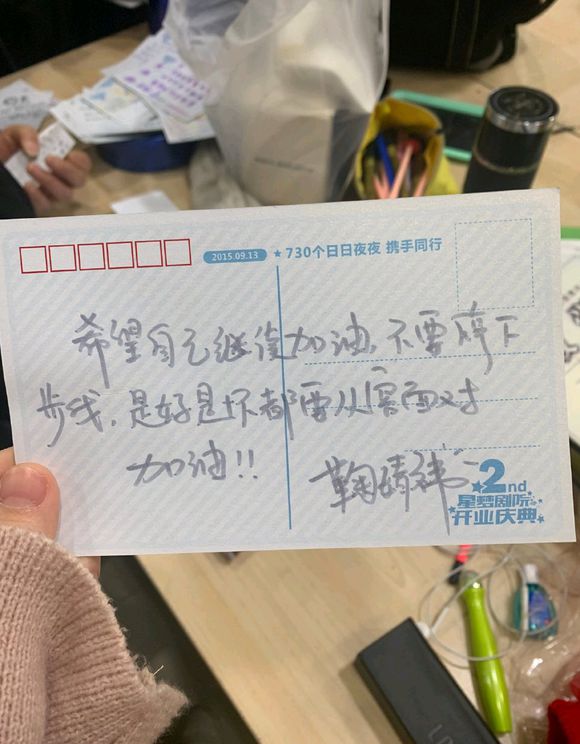 2015.09.13 ★730个日日夜夜 携手同行
希望自己继续加油,不要停下
步伐,是好是坏都要从容面对
加油!! 鞠婧祎
2nd
星梦剧院
开业庆典